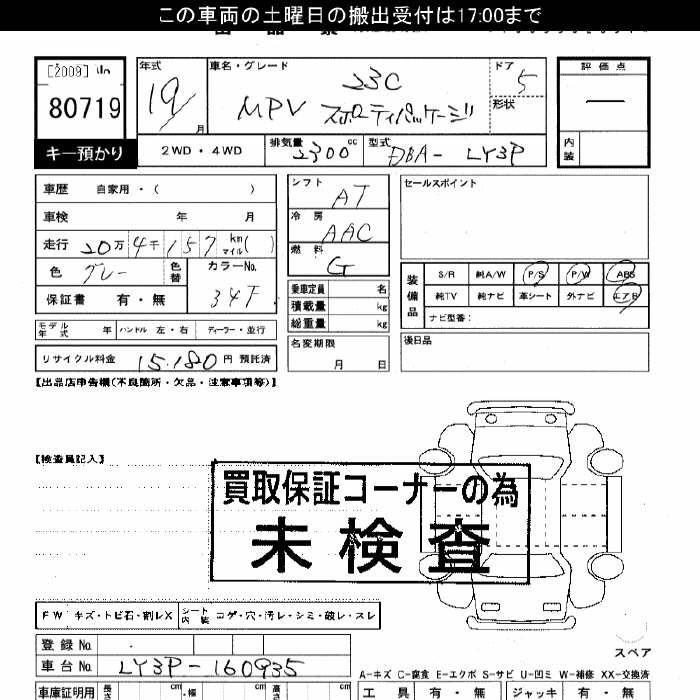 この車両の土曜日の搬出受付は17:00まで
[2009]
80719
キー預かり
年式 19 月
車名・グレード 23C
MPV スポーティパッケージ
ドア 5
形状
評価点
―
内装
2WD・4WD
排気量 2300 cc
型式 DBA- LY3P
車歴 自家用・( )
車検 年 月
走行 20万 4千 157 km マイル( )
色 グレー
色替
カラーNo. 34F
保証書 有・無
シフト AT
冷房 AAC
燃料 G
乗車定員 名
積載量 kg
総重量 kg
名変期限 月 日
セールスポイント
装備品
S/R 純A/W P/S P/W ABS
純TV 純ナビ 革シート 外ナビ エアB
ナビ型番:
後日品
モデル年式 年 ハンドル 左・右 ディーラー・並行
リサイクル料金 15.180 円 預託済
【出品店申告欄(不良箇所・欠品・注意事項等)】
【検査員記入】
買取保証コーナーの為
未検査
FW キズ・トビ石・割レX
シート内装 コゲ・穴・汚レ・シミ・破レ・スレ
スペア
登録No.
車台No. LY3P-160935
A-キズ C-腐食 E-エクボ S-サビ U-凹ミ W-補修 XX-交換済
車庫証明用 長さ cm ・幅 cm 高さ cm
工具 有・無 ジャッキ 有・無